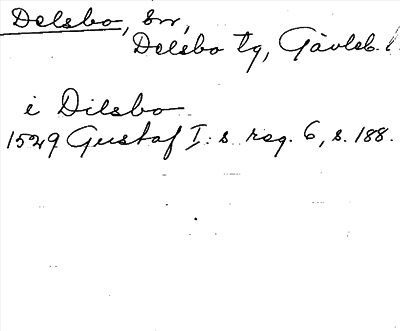 Delsbo, sn,
Delsbo tg, Gävleb. l.
i Dilsbo
1529 Gustaf I:s reg. 6, s. 188.